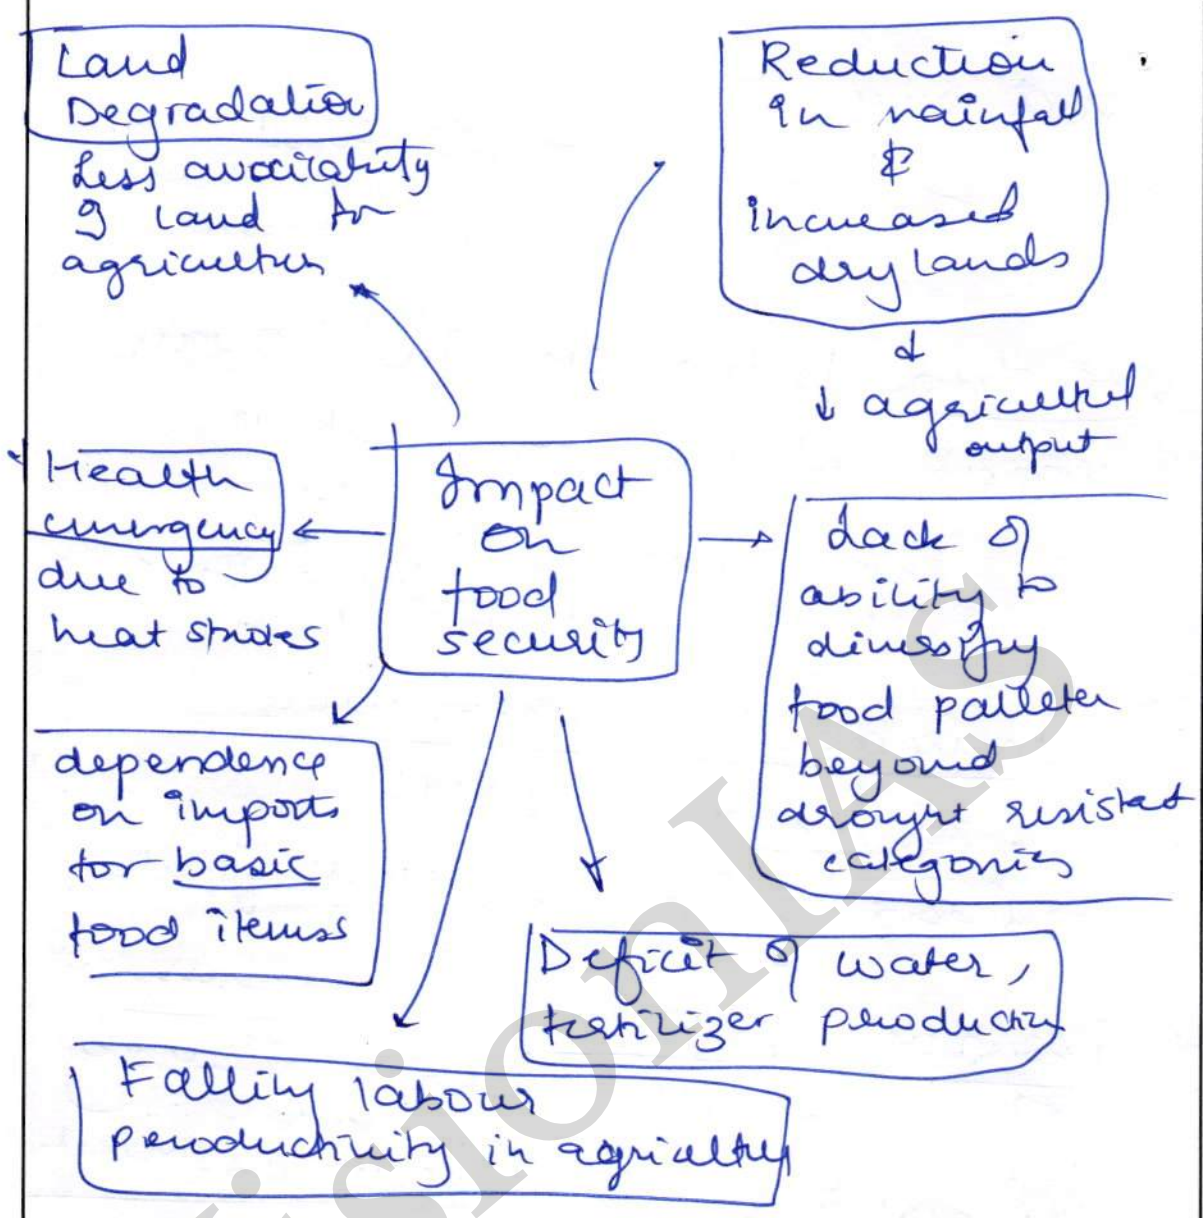 Land
Degradation
Less availability
of land for
agriculture
Reduction
in rainfall
&
increased
drylands
↓
↓ agricultural
output
Health
emergency
due to
heat strokes
Impact
on
food
security
Lack of
ability to
diversify
food palleter
beyond
drought resistant
categories
dependence
on imports
for basic
food items
Deficit of water,
fertilizer production
Falling labour
productivity in agriculture
VisionIAS